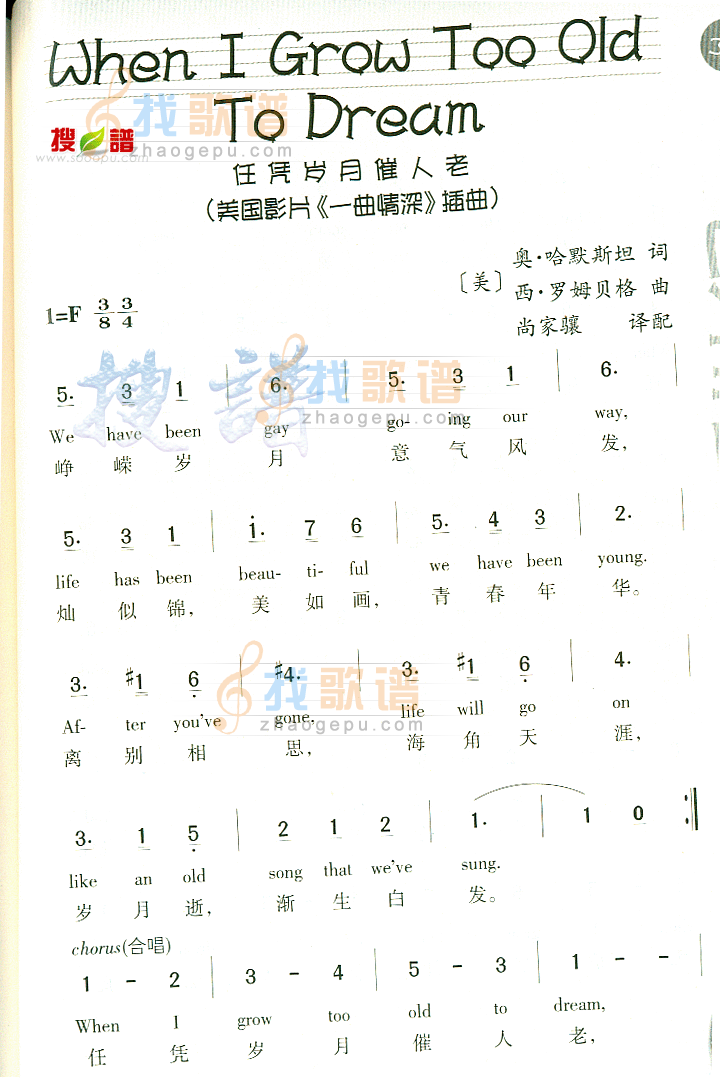 When I Grow Too Old
To Dream
搜谱
www.sooopu.com
找歌谱
zhaogepu.com
任凭岁月催人老
（美国影片《一曲情深》插曲）
〔美〕奥·哈默斯坦 词
西·罗姆贝格 曲
尚家骧 译配
1=F 3/8 3/4
5. 3 1 | 6. | 5. 3 1 | 6. |
We have been gay go- ing our way,
峥嵘岁月 意气风发，
搜谱
找歌谱
zhaogepu.com
5. 3 1 | i. 7 6 | 5. 4 3 | 2. |
life has been beau- ti- ful we have been young.
灿似锦， 美如画， 青春年华。
3. #1 6 | #4. | 3. #1 6 | 4. |
Af- ter you've gone. life will go on
离别相思， 海角天涯，
找歌谱
zhaogepu.com
3. 1 5 | 2 1 2 | 1. | 1 0 :||
like an old song that we've sung.
岁月逝， 渐生白发。
chorus(合唱)
1 - 2 | 3 - 4 | 5 - 3 | 1 - - |
When I grow too old to dream,
任凭岁月催人老，
找歌谱
zhaogepu.com